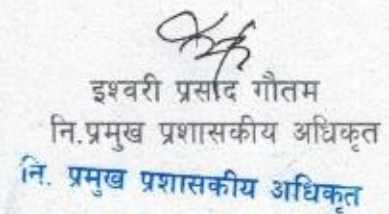 इश्वरी प्रसाद गौतम
नि.प्रमुख प्रशासकीय अधिकृत
नि. प्रमुख प्रशासकीय अधिकृत